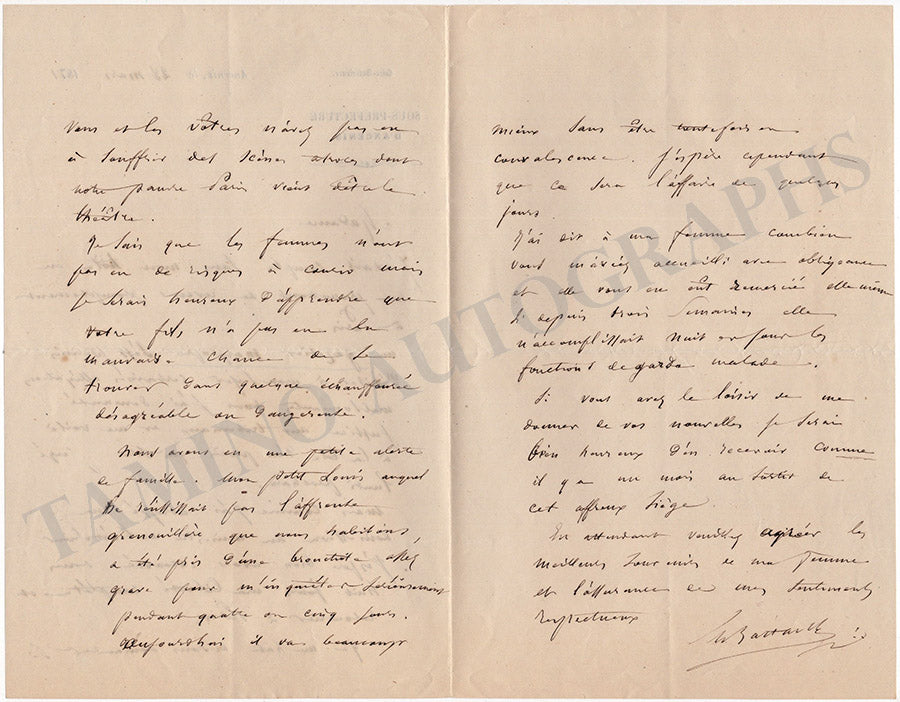 Vous et les vôtres n'avez pas eu
à souffrir des scènes atroces dont
notre pauvre Paris vient d'être le
théâtre.
Je sais que les femmes n'ont
pas eu de risques à courir mais
je serais heureux d'apprendre que
votre fils n'a pas eu la
mauvaise chance de se
trouver dans quelque échauffourée
désagréable ou dangereuse.
Nous avons eu une petite alerte
de famille. Mon petit Louis auquel
ne réussissait pas l'affreuse
grenouillère que nous habitons,
a été pris d'une bronchite assez
grave pour m'inquiéter sérieusement
pendant quatre ou cinq jours.
Aujourd'hui il va beaucoup
mieux sans être toutefois en
convalescence. J'espère cependant
que ce sera l'affaire de quelques
jours.
J'ai dit à ma femme combien
vous m'aviez accueilli avec obligeance
et elle vous en eut remercié elle même
si depuis trois semaines elle
n'accomplissait nuit et jour les
fonctions de garde malade.
Si vous avez le loisir de me
donner de vos nouvelles je serai
bien heureux d'en recevoir comme
il y a un mois au sortir de
cet affreux siège.
En attendant veuillez agréer les
meilleurs souvenirs de ma femme
et l'assurance de mes sentiments
respectueux
TAMINO AUTOGRAPHS
SOUS-PRÉFECTURE
D'ANCENIS
28 mars 1871